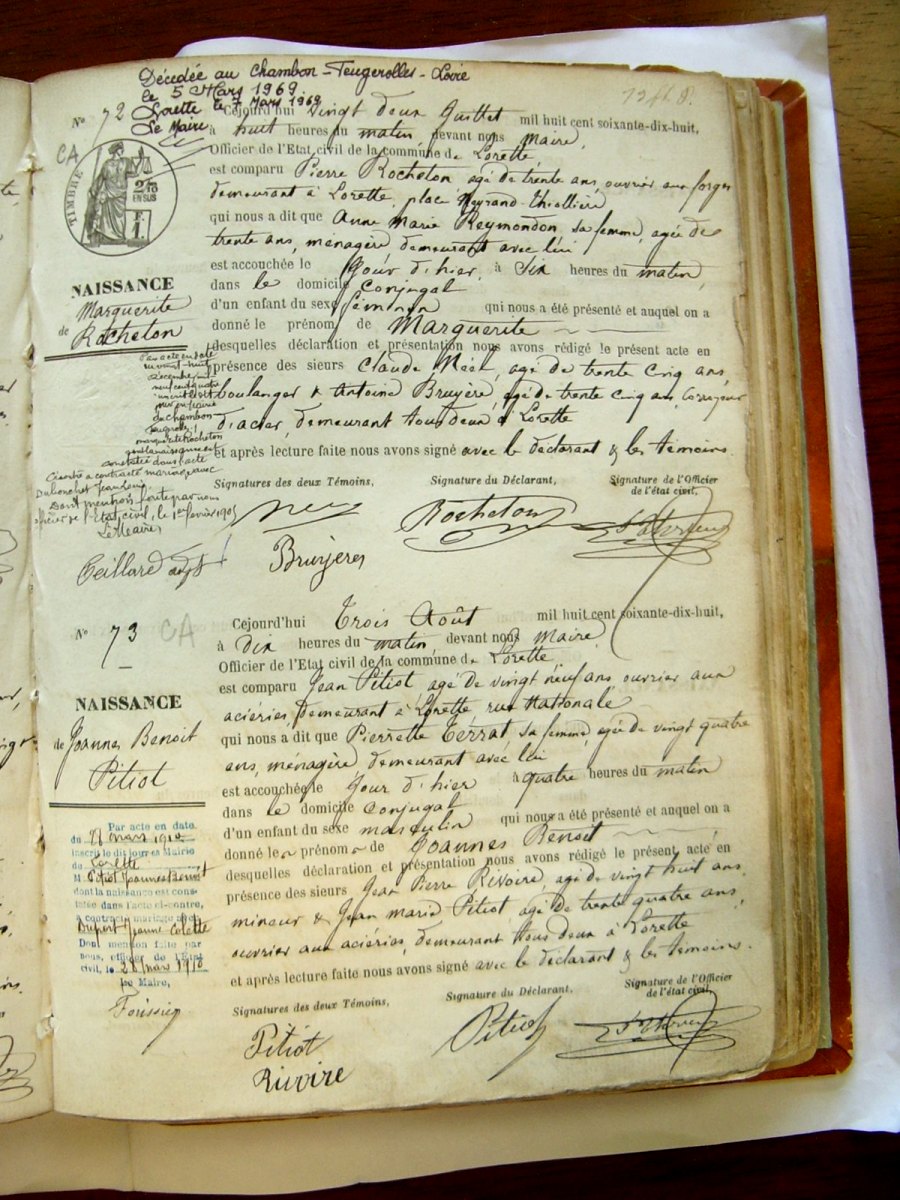 Décédée au Chambon-Feugerolles-Loire
le 5 Mars 1969
Lorette le 7 Mars 1969
Le Maire
Nº 72
CA
TIMBRE
2/10
EN SUS
F.
1.
Cejourd'hui Vingt deux Juillet mil huit cent soixante-dix-huit,
à huit heures du matin devant nous Maire,
Officier de l'Etat civil de la commune de Lorette,
est comparu Pierre Rocheton agé de trente ans, ouvrier aux forges
demeurant à Lorette, place Neyrand-Thiollière
qui nous a dit que Anne Marie Reymondon sa femme, agée de
trente ans, ménagère demeurant avec lui
est accouchée le jour d'hier, à Six heures du matin,
dans le domicile Conjugal
d'un enfant du sexe féminin qui nous a été présenté et auquel on a
donné le prénom de Marguerite
desquelles déclaration et présentation nous avons rédigé le présent acte en
présence des sieurs Claude agé de trente Cinq ans
boulanger & Antoine Bruyère, agé de trente Cinq ans, Corroyeur
d'acier, demeurant tous deux à Lorette
et après lecture faite nous avons signé avec le déclarant & les témoins.
NAISSANCE
de Marguerite
Rocheton
Par acte en date
du vingt-huit
Décembre mil
neuf cent quatre
inscrit le dit
jour en Mairie
du Chambon
Feugerolles
Marguerite Rocheton
dont la naissance est
constatée dans l'acte
Ci-contre a contracté mariage avec
Jean Louis
Dont mention faite par nous
officier de l'Etat civil, le 1er février 1905
Le Maire,
Teillard adjt
Signatures des deux Témoins, Signature du Déclarant, Signature de l'Officier
de l'état civil,
Rocheton
Bruyères
Nº 73
CA
Cejourd'hui Trois Août mil huit cent soixante-dix-huit,
à Dix heures du matin, devant nous Maire
Officier de l'Etat civil de la commune de Lorette
est comparu Jean Pitiot agé de vingt neuf ans ouvrier aux
aciéries, demeurant à Lorette rue Nationale
qui nous a dit que Pierrette Terrat sa femme, agée de vingt quatre
ans, ménagère demeurant avec lui
est accouchée le jour d'hier à quatre heures du matin
dans le domicile Conjugal
d'un enfant du sexe masculin qui nous a été présenté et auquel on a
donné le prénom de Joannes Benoit
desquelles déclaration et présentation nous avons rédigé le présent acte en
présence des sieurs Jean Pierre Rivoire, agé de vingt huit ans
mineur & Jean marie Pitiot agé de trente quatre ans
ouvrier aux aciéries, demeurant tous deux à Lorette
et après lecture faite nous avons signé avec le déclarant & les témoins.
NAISSANCE
de Joannes Benoit
Pitiot
Par acte en date
du 28 mars 1910
inscrit le dit jour es Mairie
de Lorette
M. Pitiot Joannes Benoit
dont la naissance est cons-
tatée dans l'acte ci-contre,
a contracté mariage avec
Jeanne Colette
Dont mention faite par
nous, officier de l'Etat
civil, le 28 mars 1910
Le Maire,
Signatures des deux Témoins, Signature du Déclarant, Signature de l'Officier
de l'état civil
Pitiot
Pitiot
Rivoire